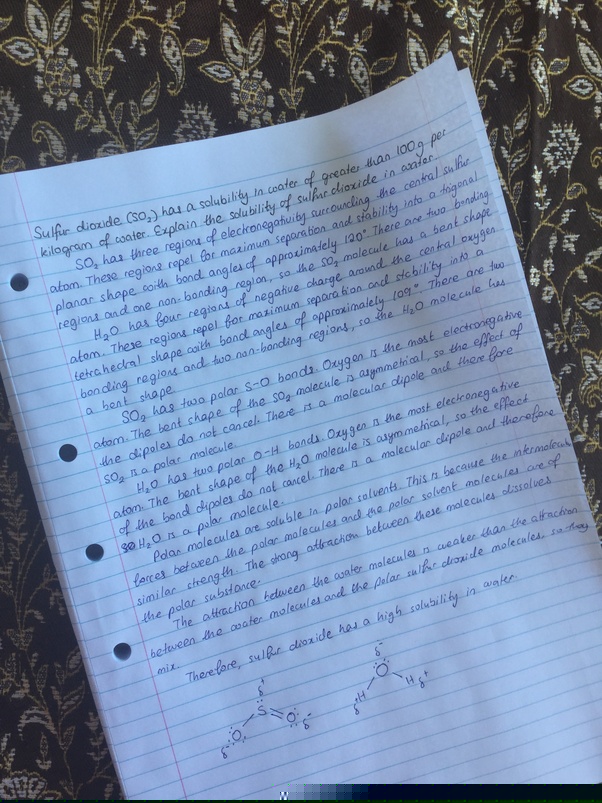 Sulfur dioxide (SO₂) has a solubility in water of greater than 100g per
kilogram of water. Explain the solubility of sulfur dioxide in water.
SO₂ has three regions of electronegativity surrounding the central sulfur
atom. These regions repel for maximum separation and stability into a trigonal
planar shape with bond angles of approximately 120°. There are two bonding
regions and one non-bonding region, so the SO₂ molecule has a bent shape
H₂O has four regions of negative charge around the central oxygen
atom. These regions repel for maximum separation and stability into a
tetrahedral shape with bond angles of approximately 109°. There are two
bonding regions and two non-bonding regions, so the H₂O molecule has
a bent shape
SO₂ has two polar S-O bonds. Oxygen is the most electronegative
atom. The bent shape of the SO₂ molecule is asymmetrical, so the effect of
the dipoles do not cancel. There is a molecular dipole and therefore
SO₂ is a polar molecule.
H₂O has two polar O-H bonds. Oxygen is the most electronegative
atom. The bent shape of the H₂O molecule is asymmetrical, so the effect
of the bond dipoles do not cancel. There is a molecular dipole and therefore
H₂O is a polar molecule.
Polar molecules are soluble in polar solvents. This is because the intermolecular
forces between the polar molecules and the polar solvent molecules are of
similar strength. The strong attraction between these molecules dissolves
the polar substance.
The attraction between the water molecules is weaker than the attraction
between the water molecules and the polar sulfur dioxide molecules, so they
mix.
Therefore, sulfur dioxide has a high solubility in water.
δ⁺
S
O
δ⁻
O
δ⁻
δ⁻
O
H
δ⁺
H
δ⁺